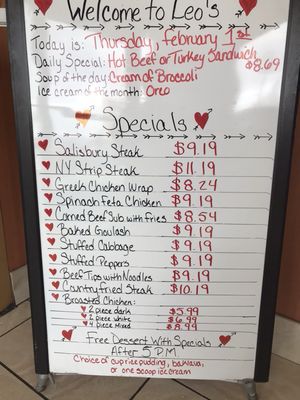 Welcome to Leo's
Today is: Thursday, february 1st
Daily Special: Hot Beef or Turkey Sandwich $8.69
Soup of the day: Cream of Broccoli
Ice cream of the month: Oreo
Specials
Salisbury Steak $9.19
NY Strip Steak $11.19
Greek Chicken Wrap $8.24
Spinach Feta Chicken $9.19
Corned Beef Sub with Fries $8.54
Baked Goulash $9.19
Stuffed Cabbage $9.19
Stuffed Peppers $9.19
Beef Tips with Noodles $9.19
Country fried Steak $10.19
Broasted Chicken:
2 piece dark $5.99
2 piece white $6.99
4 piece mixed $8.99
Free Dessert With Specials
After 5 P.M
Choice of cup rice pudding, baklava,
or one scoop ice cream